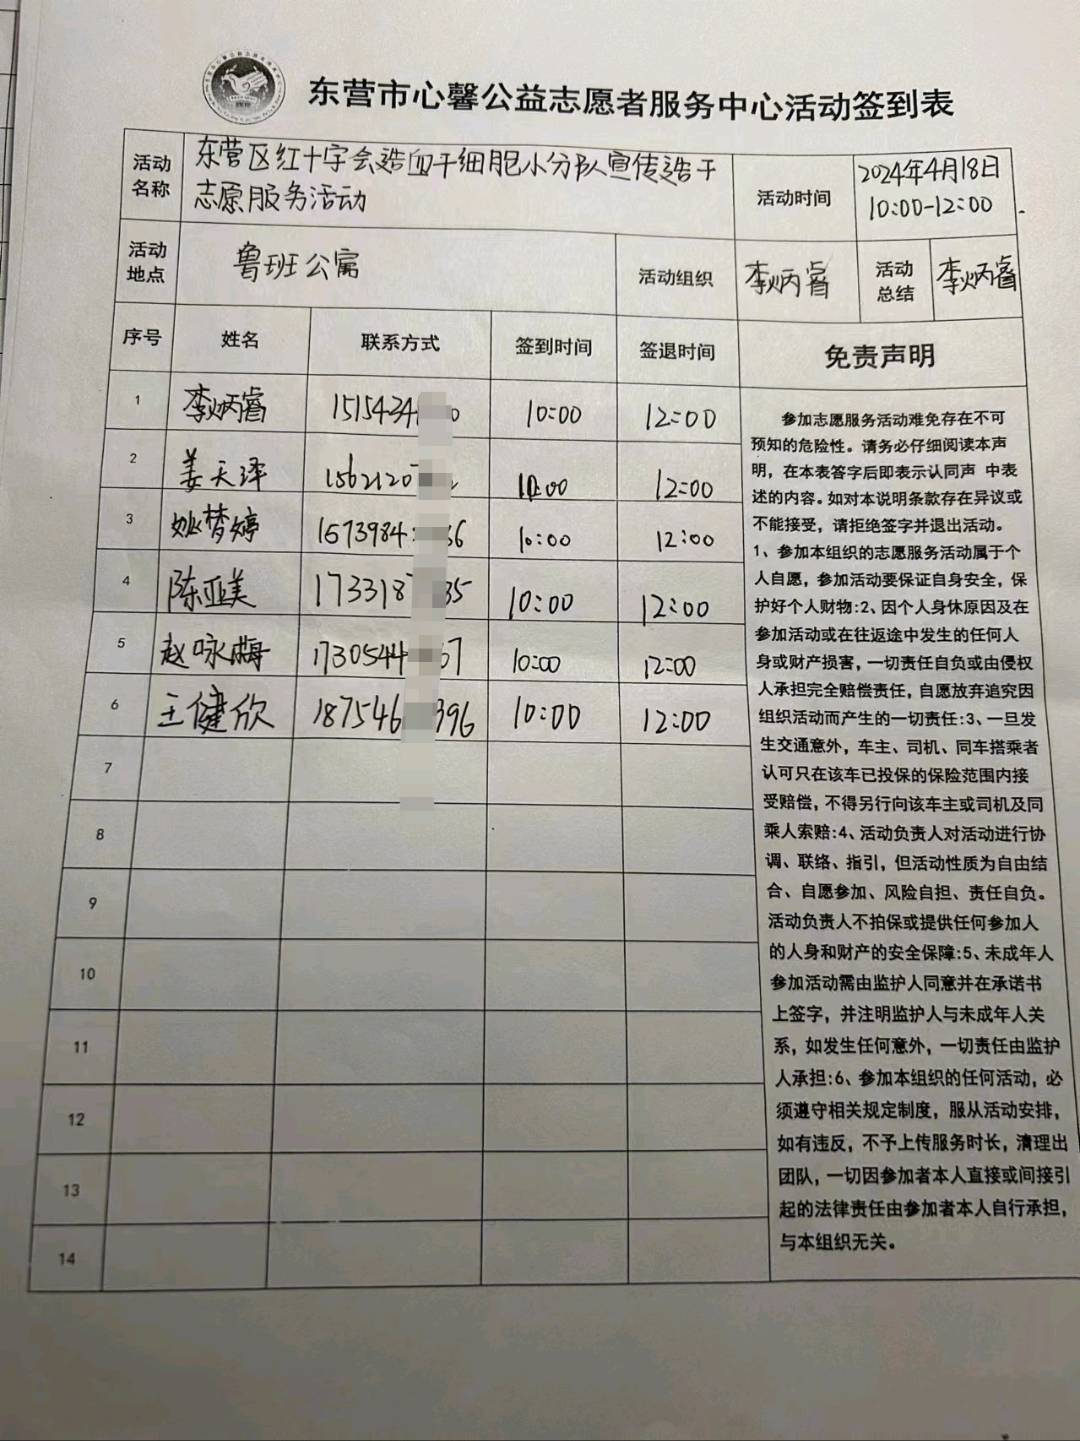 东营市心馨公益志愿者服务中心活动签到表
活动名称
东营区红十字会造血干细胞小分队宣传造干
志愿服务活动
活动时间
2024年4月18日
10:00-12:00
活动地点
鲁班公寓
活动组织
李炳睿
活动总结
李炳睿
序号 姓名 联系方式 签到时间 签退时间 免责声明
1 李炳睿 1515434 0 10:00 12:00
2 姜天泽 1562120 10:00 12:00
3 姚梦婷 1573984 36 10:00 12:00
4 陈亚美 173318 35 10:00 12:00
5 赵咏梅 1730544 37 10:00 12:00
6 王健欣 187546 396 10:00 12:00
7
8
9
10
11
12
13
14
参加志愿服务活动难免存在不可
预知的危险性。请务必仔细阅读本声
明，在本表答字后即表示认同声 中表
述的内容。如对本说明条款存在异议或
不能接受，请拒绝签字并退出活动。
1、参加本组织的志愿服务活动属于个
人自愿，参加活动要保证自身安全，保
护好个人财物:2、因个人身休原因及在
参加活动或在往返途中发生的任何人
身或财产损害，一切责任自负或由侵权
人承担完全赔偿责任，自愿放弃追究因
组织活动而产生的一切责任:3、一旦发
生交通意外，车主、司机、同车搭乘者
认可只在该车已投保的保险范围内接
受赔偿，不得另行向该车主或司机及同
乘人索赔:4、活动负责人对活动进行协
调、联络、指引，但活动性质为自由结
合、自愿参加、风险自担、责任自负。
活动负责人不拍保或提供任何参加人
的人身和财产的安全保障:5、未成年人
参加活动需由监护人同意并在承诺书
上签字，并注明监护人与未成年人关
系，如发生任何意外，一切责任由监护
人承担:6、参加本组织的任何活动，必
须遵守相关规定制度，服从活动安排，
如有违反，不予上传服务时长，清理出
团队，一切因参加者本人直接或间接引
起的法律责任由参加者本人自行承担，
与本组织无关。